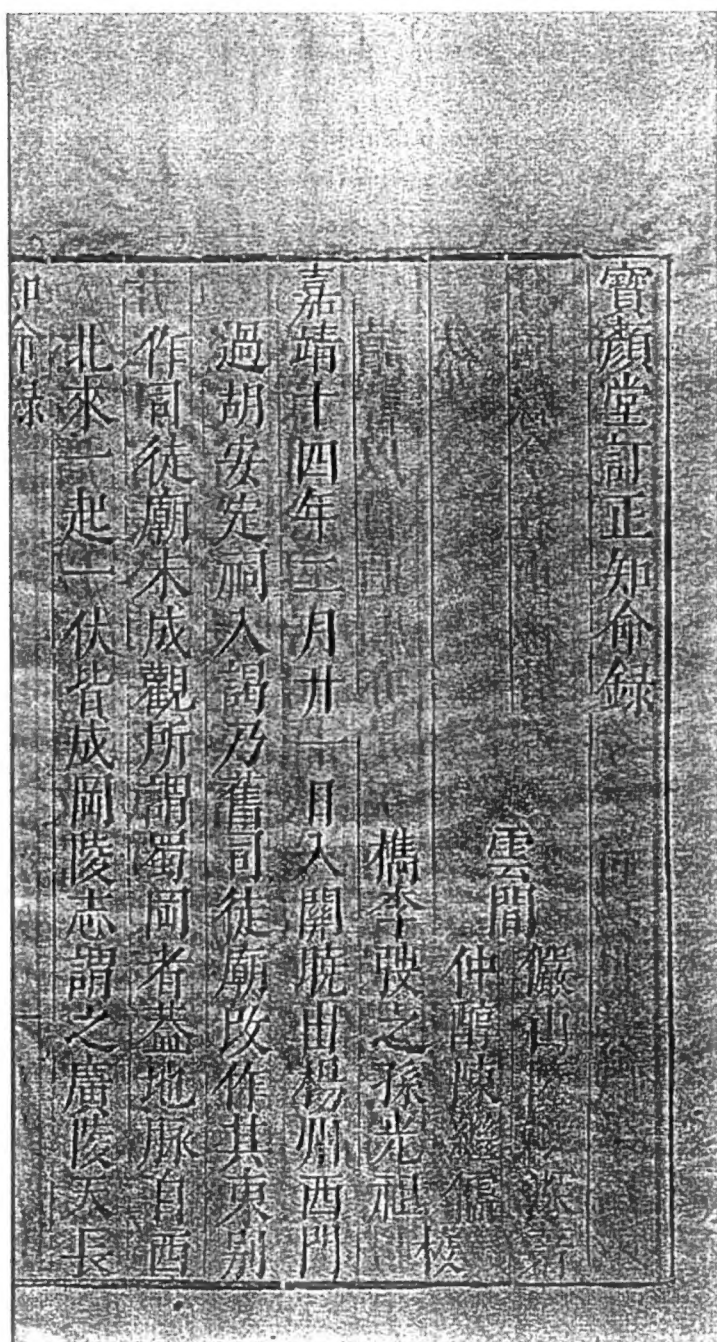 寶顏堂訂正知命錄
雲間
儼山陸深著
仲醇陳繼儒
檇李弢之孫光祖
校
嘉靖十四年二月廿一日入關曉由楊州西門
過胡安定祠入謁乃舊司徒廟改作其東別
作司徒廟未成觀所謂蜀岡者葢地脉自西
北來一起一伏皆成岡陵志謂之廣陵天長
知命錄